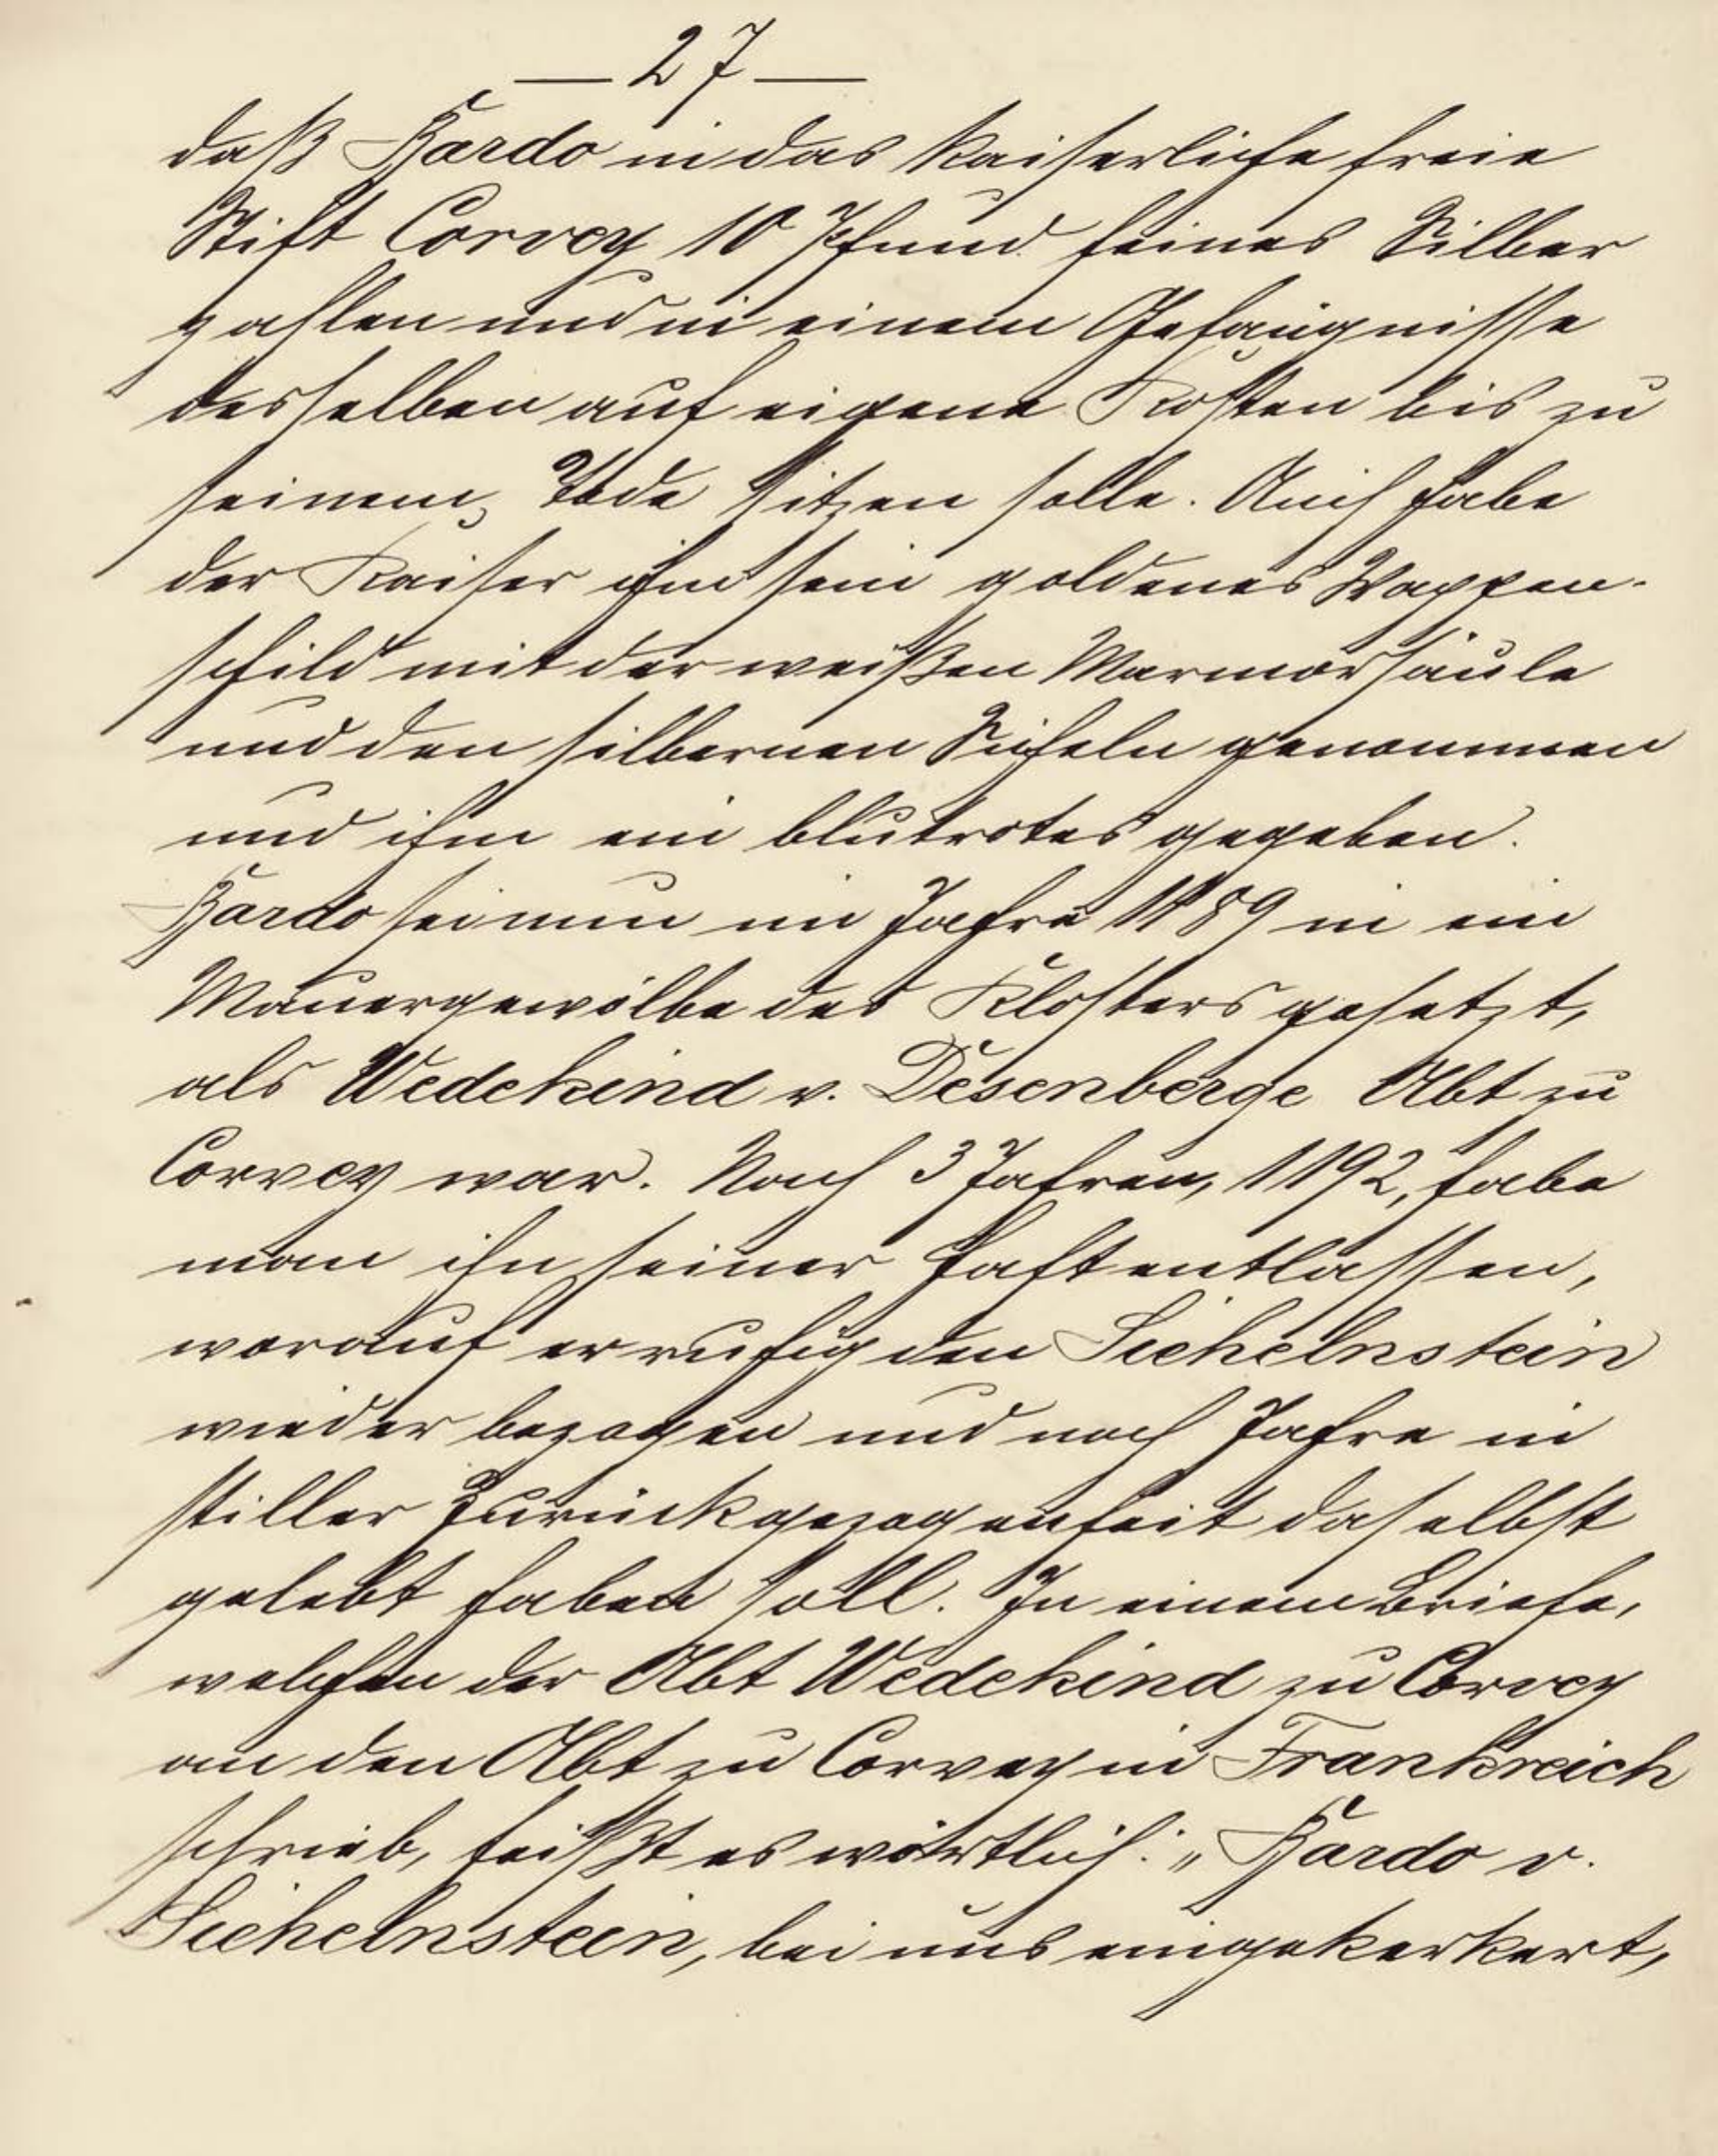 — 27 —
daß Bardo in das Kaiserliche freie
Stift Corvey 10 Pfund feines Silber
zahlen und in einem Gefängnisse
desselben auf eigene Kosten bis zu
seinem Tode sitzen solle. Auch habe
der Kaiser ihm sein goldenes Wappen-
schild mit der weißen Marmorsäule
und den silbernen Sicheln genommen
und ihm ein blutrotes gegeben.
Bardo sei nun im Jahre 1189 in ein
Mauergewölbe des Klosters gesetzt,
als Wedekind v. Desenberge Abt zu
Corvey war. Nach 3 Jahren, 1192, habe
man ihn seiner Haft entlassen,
worauf er ruhig den Sichelnstein
wieder bezogen und noch Jahre in
stiller Zurückgezogenheit daselbst
gelebt haben soll. In einem Briefe,
welchen der Abt Wedekind zu Corvey
an den Abt zu Corvey in Frankreich
schrieb, heißt es wörtlich: „Bardo v.
Sichelnstein, bei uns eingekerkert,